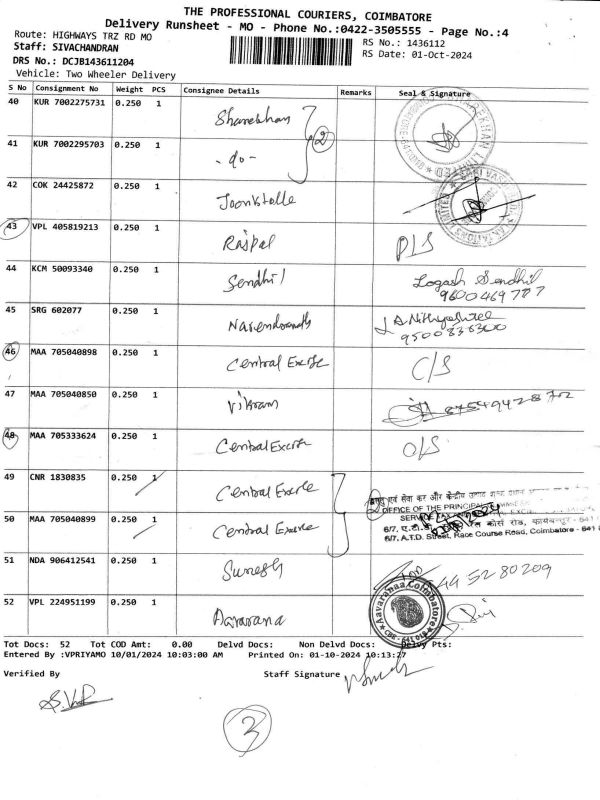 THE PROFESSIONAL COURIERS, COIMBATORE
Delivery Runsheet - MO - Phone No.:0422-3505555 - Page No.:4
Route: HIGHWAYS TRZ RD MO
RS No.: 1436112
Staff: SIVACHANDRAN
RS Date: 01-Oct-2024
DRS No.: DCJB143611204
Vehicle: Two Wheeler Delivery
S No Consignment No Weight PCS Consignee Details Remarks Seal & Signature
40 KUR 7002275731 0.250 1
2
41 KUR 7002295703 0.250 1 -do-
42 COK 24425872 0.250 1
43 VPL 405819213 0.250 1 Rajpal
44 KCM 50093340 0.250 1 Sendhil Logash Sendhil
9600469777
45 SRG 602077 0.250 1
9500336300
46 MAA 705040898 0.250 1 Central Excise C/S
47 MAA 705040850 0.250 1 Vikram 8754942872
48 MAA 705333624 0.250 1 Central Excise O/S
49 CNR 1830835 0.250 1 Central Excise
OFFICE OF THE PRINCIPAL
50 MAA 705040899 0.250 1 Central Excise
6/7, A.T.D. Street, Race Course Road, Coimbatore - 641
51 NDA 906412541 0.250 1 Suresh 445280209
52 VPL 224951199 0.250 1 Aavarana
Aavaranaa Coimbatore
Tot Docs: 52 Tot COD Amt: 0.00 Delvd Docs: Non Delvd Docs: Delvy Pts:
Entered By :VPRIYAMO 10/01/2024 10:03:00 AM Printed On: 01-10-2024 10:13:27
Verified By Staff Signature
3